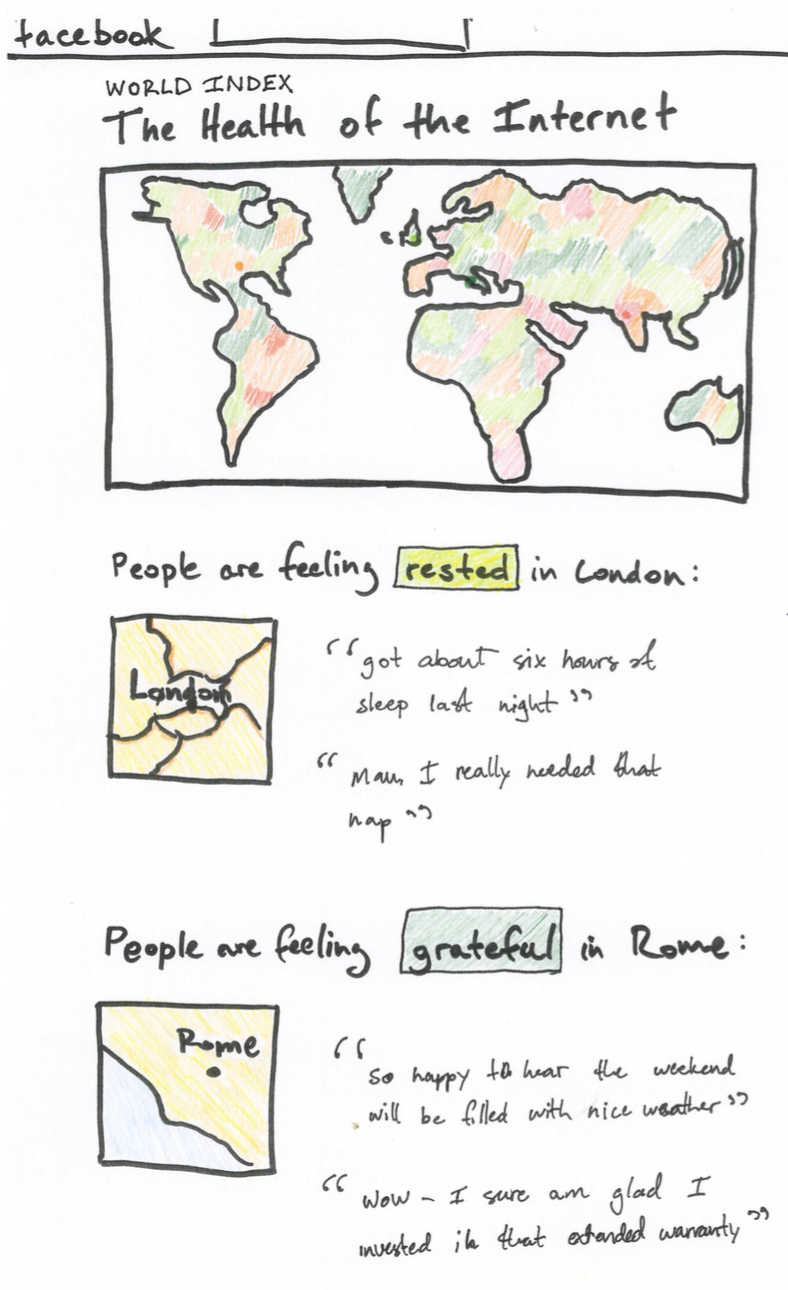 facebook
WORLD INDEX
The Health of the Internet
People are feeling rested in London:
London
"got about six hours of
sleep last night"
"Man, I really needed that
nap"
People are feeling grateful in Rome:
Rome
"So happy to hear the weekend
will be filled with nice weather"
"Wow - I sure am glad I
invested in that extended warranty"